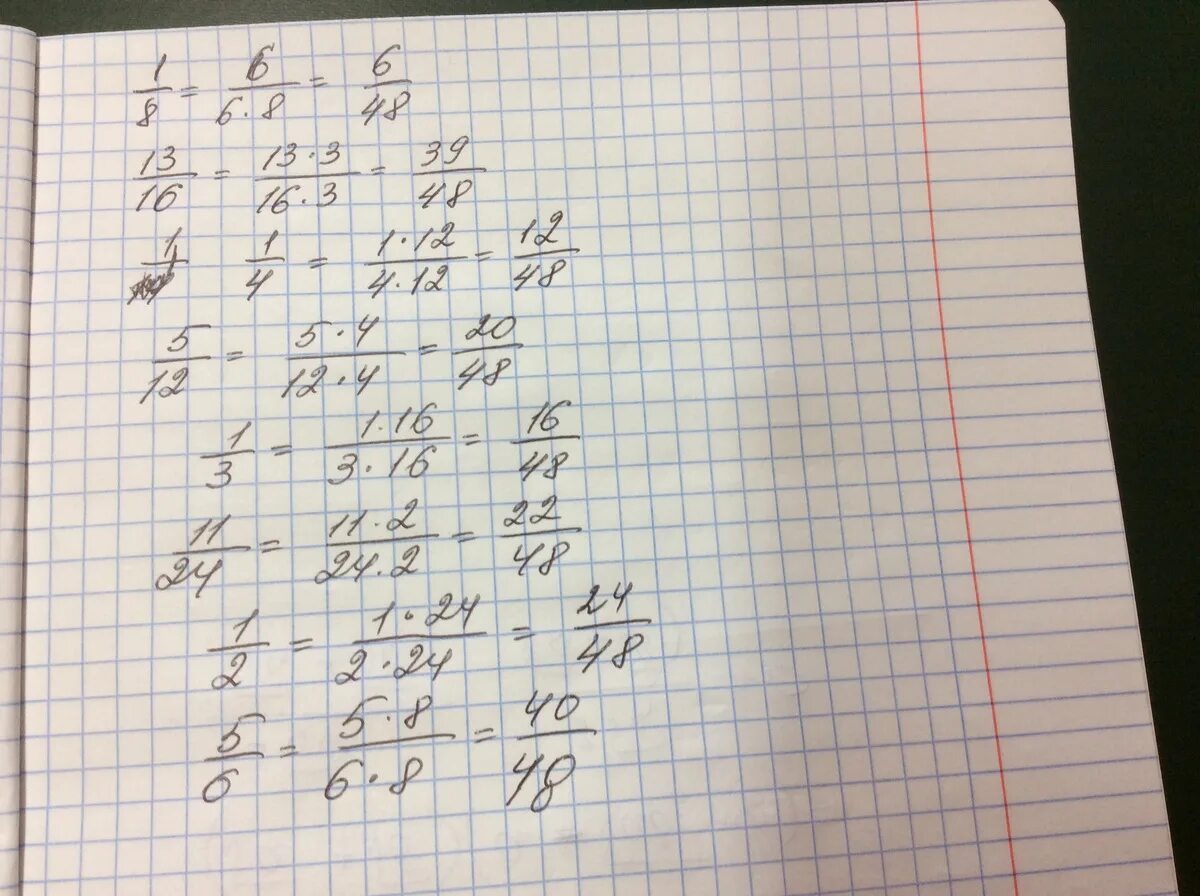 1/8 = 6/(6·8) = 6/48
13/16 = (13·3)/(16·3) = 39/48
1/ 1/4 = (1·12)/(4·12) = 12/48
5/12 = (5·4)/(12·4) = 20/48
1/3 = (1·16)/(3·16) = 16/48
11/24 = (11·2)/(24·2) = 22/48
1/2 = (1·24)/(2·24) = 24/48
5/6 = (5·8)/(6·8) = 40/48